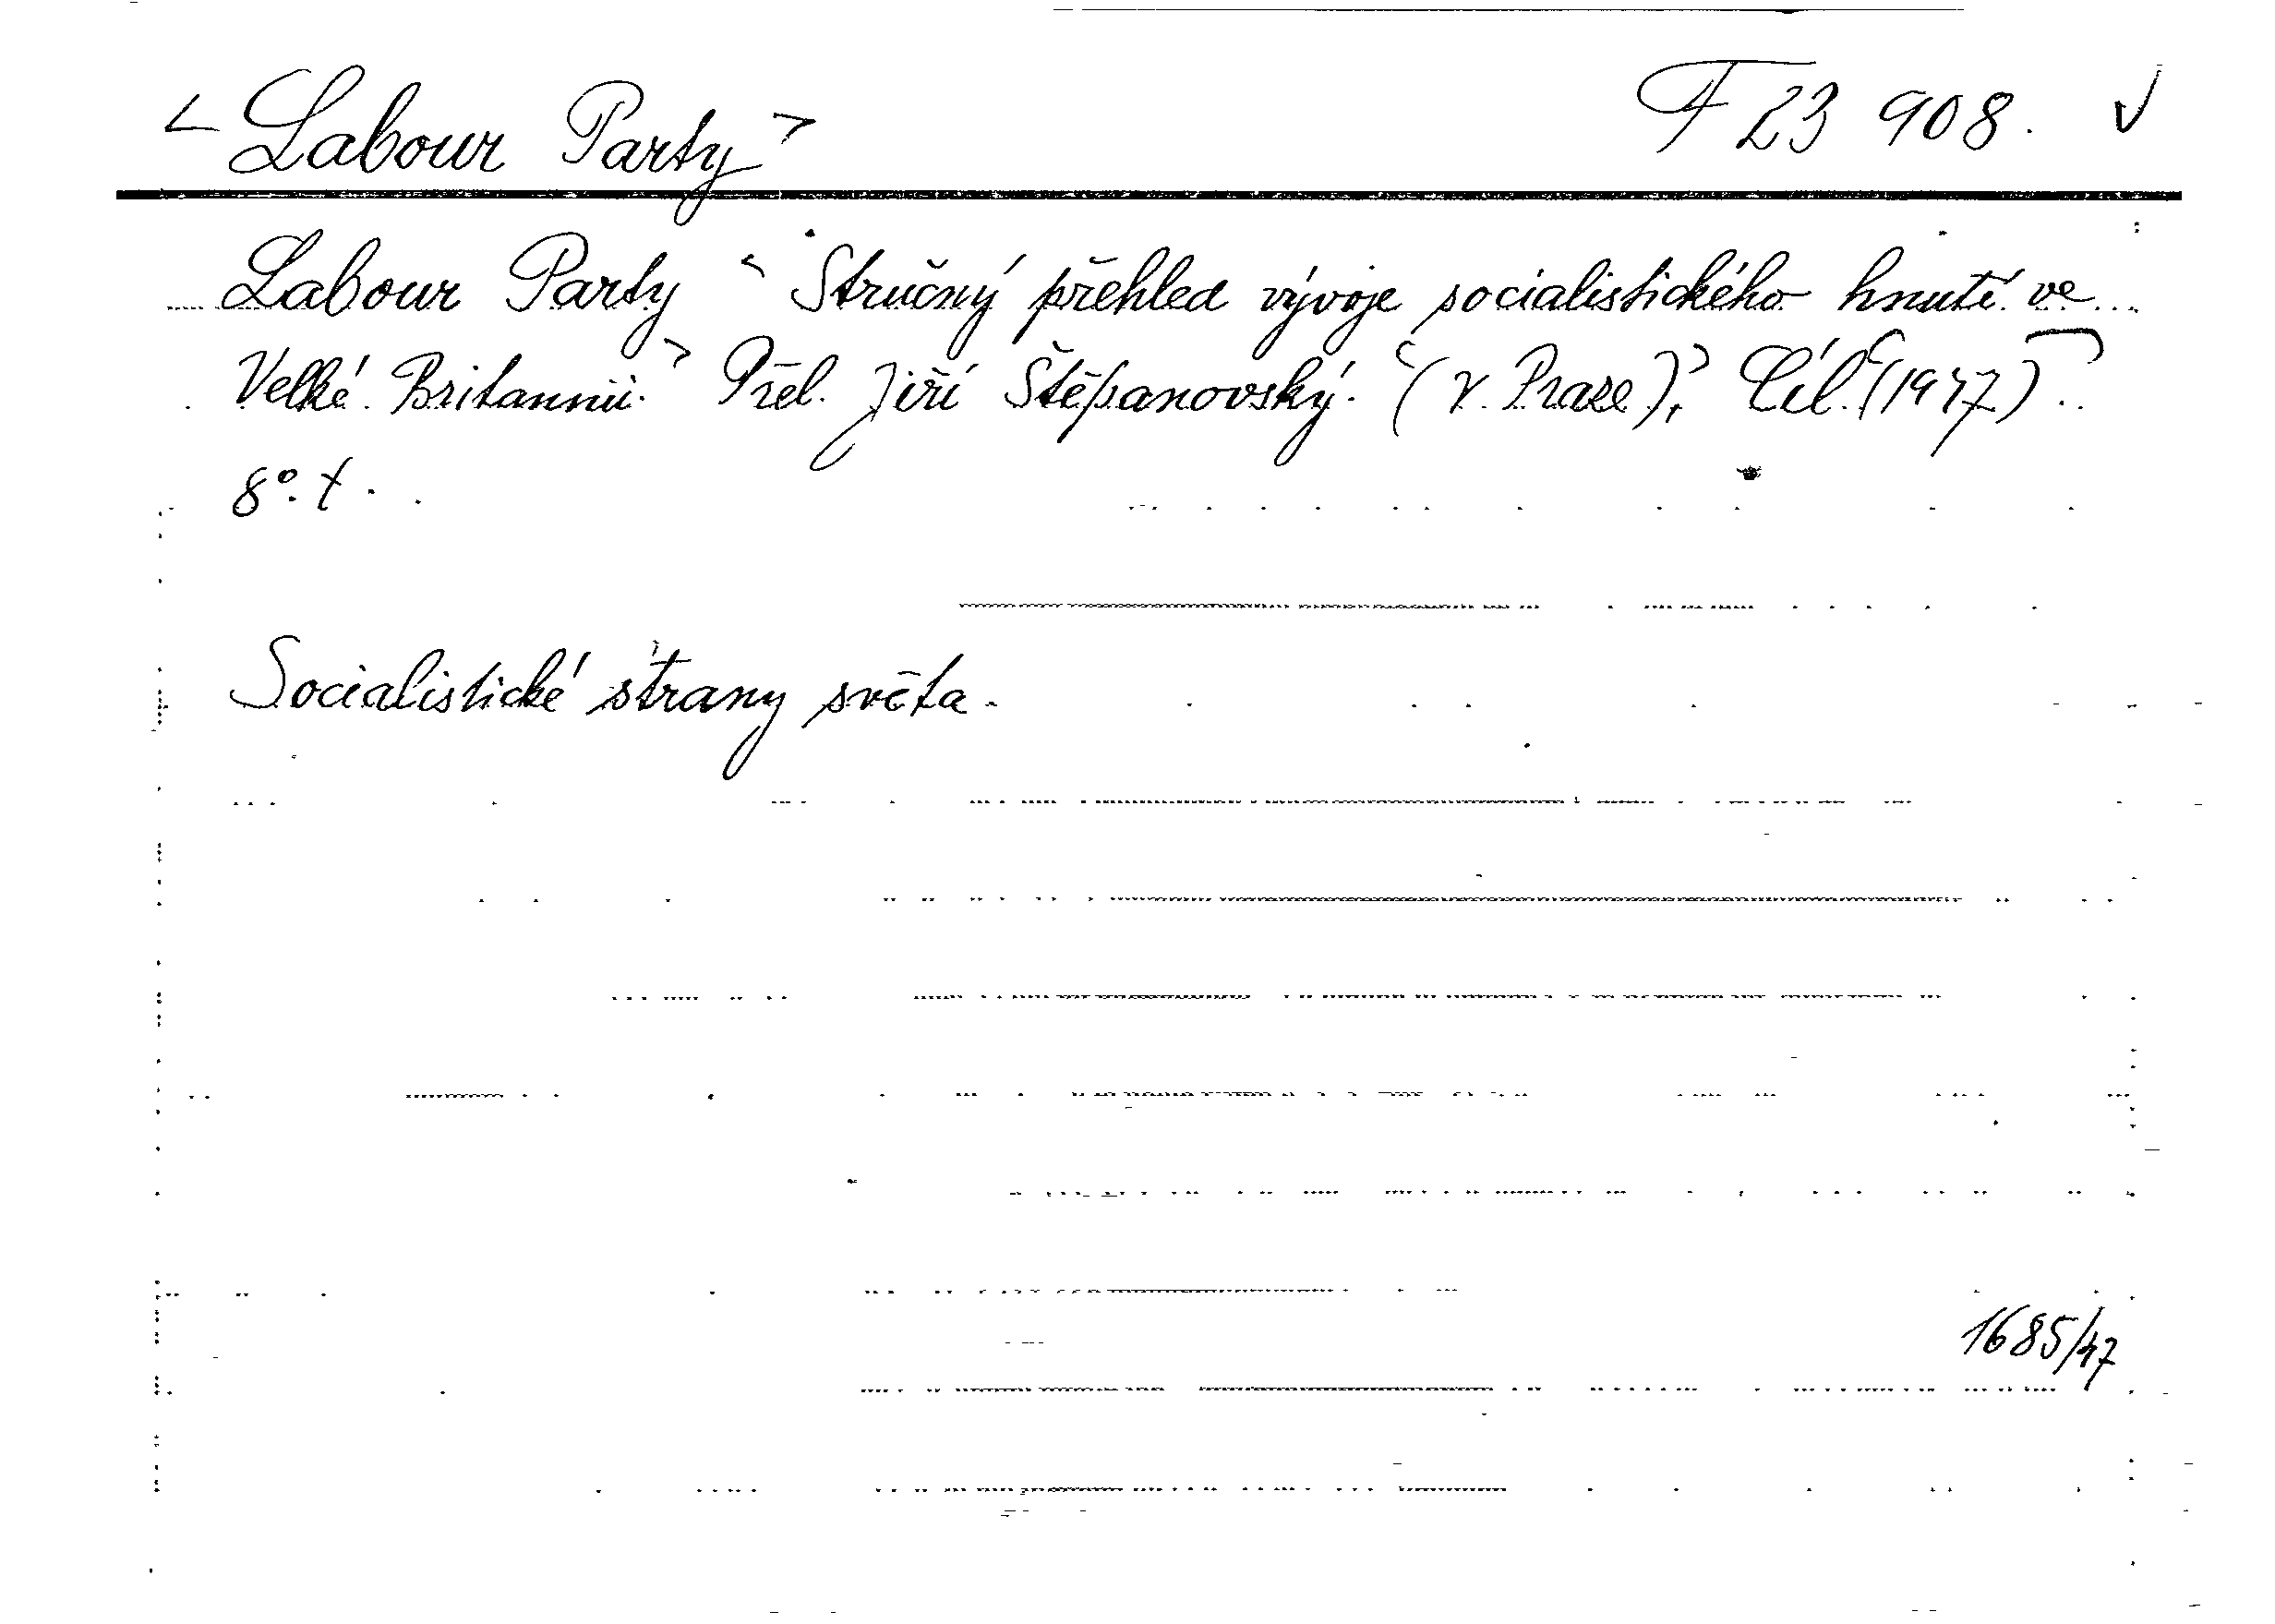 < Labour Party > F 23 908. √
Labour Party < Stručný přehled vývoje socialistického hnutí ve
Velké Britannii. > Přel. Jiří Štěpanovský. (V Praze), Cíl (1947).
8°. t.
Socialistické strany světa.
1685/47